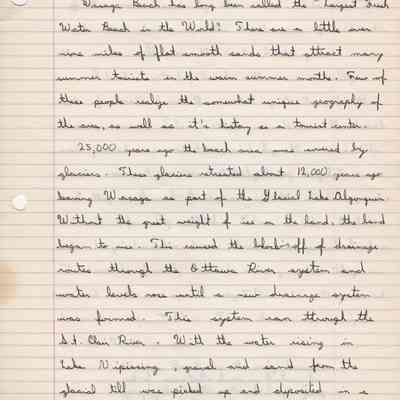 Wasaga Beach has long been called the "Largest Fresh
Water Beach in the World". There are a little over
nine miles of flat smooth sands that attract many
summer tourists in the warm summer months. Few of
these people realize the somewhat unique geography of
the area, as well as it's history as a tourist center.
25,000 years ago the beach area was covered by
glaciers. These glaciers retreated about 12,000 years ago
leaving Wasaga as part of the Glacial Lake Algonquin.
Without the great weight of ice on the land, the land
began to rise. This caused the blocking off of drainage
routes through the Ottawa River system and
water levels rose until a new drainage system
was formed. This system ran through the
St. Clair River. With the water rising in
Lake Nipissing, gravel and sand from the
glacial till was picked up and deposited in a